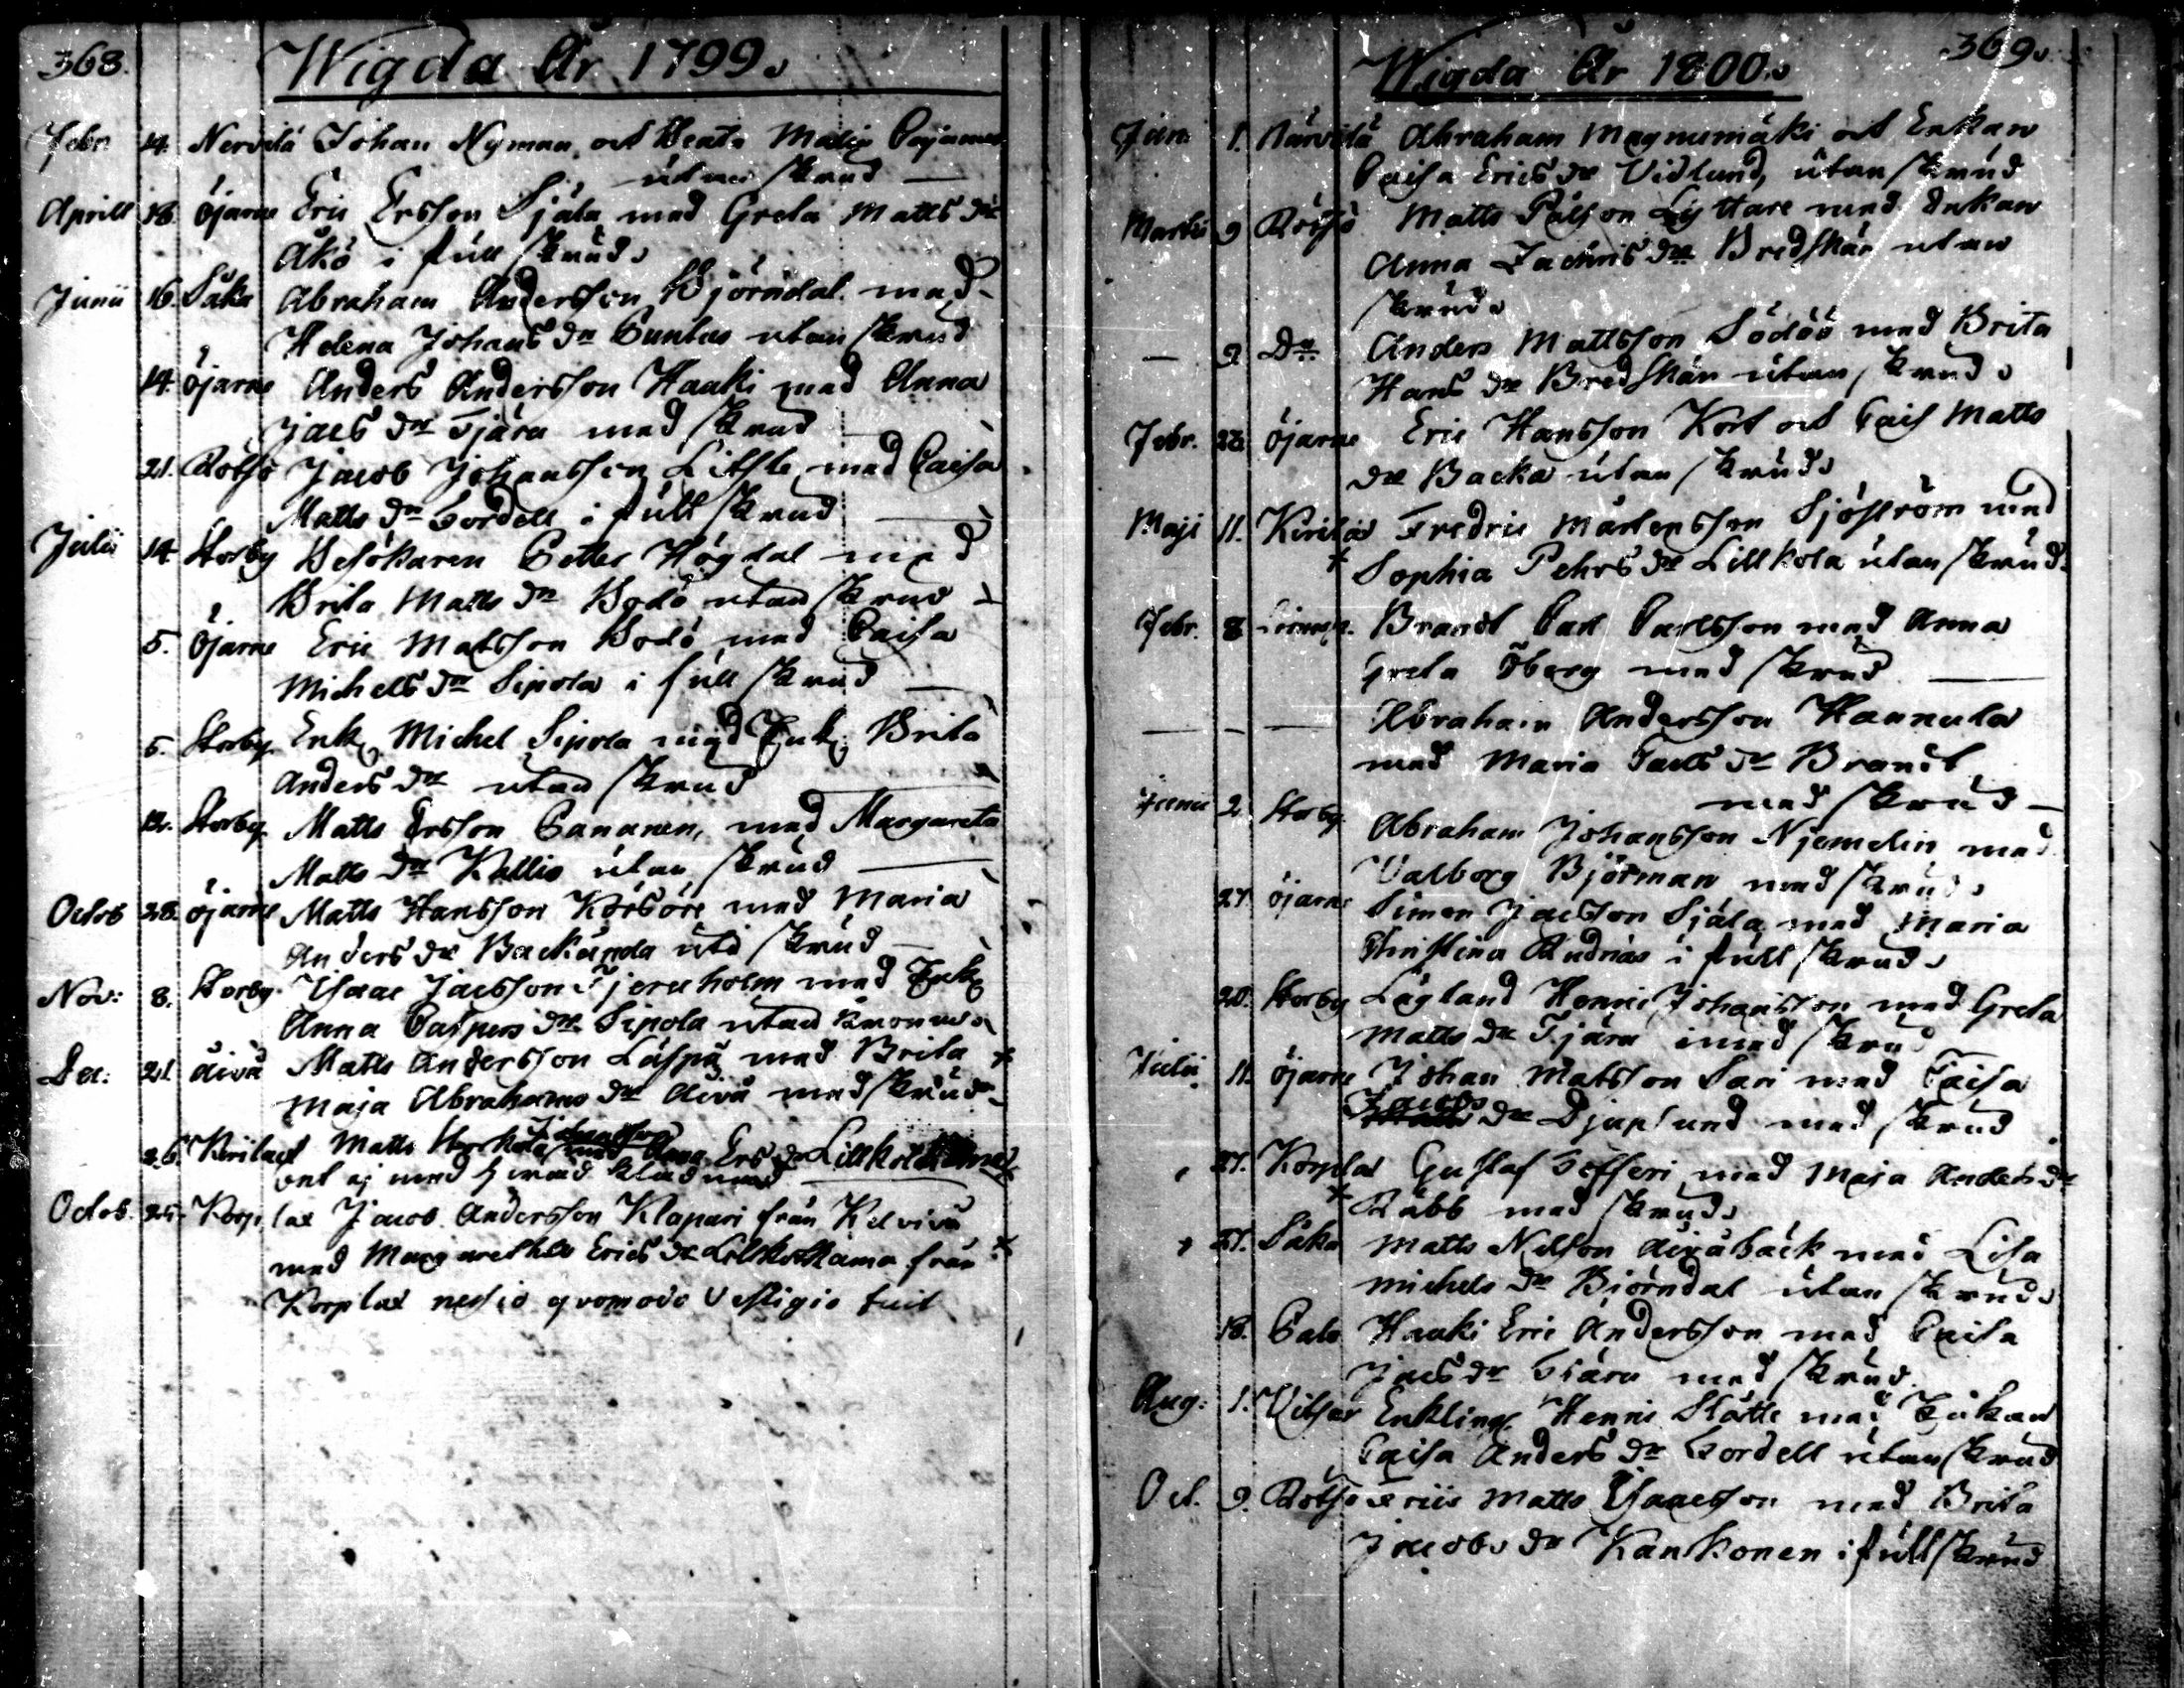 368.
Wigda År 1799.
Febr. 14. Nervilä Johan Nyman, och Beata Matts
utan skrud
Aprill 18. Öjarne Eric Ersson Själa med Greta Matts dr
Åkö i full skrud.
Junii 16. Såka Abraham Andersson Björndal med
Helena Johans dr Buntus utan skrud
14. Öjarne Anders Andersson Haaki med Anna
Jacs dr Tjäru med skrud
21. Rötsö Jacob Johansson Litsle med Caisa
Matts dr Gordell i full skrud
Julii 14 Storby Besökaren Petter Högdal med
Brita Matts dr Bodö utan skrud
5. Öjarne Eric Matsson Bodö med Caisa
Michels dr Sipola i full skrud
5. Storby Enk. Michel Sipola med Enk. Brita
Anders dr utan skrud
12. Storby Matts Ersson Pananen, med Margareta
Matts dr Kallio utan skrud
Octob 28. Öjarne Matts Hansson Körsöre med Maria
Anders dr Backända utan skrud
Nov: 8. Storby Isaac Jacsson Tjereholm med Enk
Anna Caspers dr Sipola utan
Dec: 21 Åivå Matts Andersson Laspa med Brita *
Maja Abrahams dr Åivå med skrud
26. Kirilax Matts Storkola Johansson med Anna Ers dr Lillkola
Octob. 25. Korplax Jacob Andersson Klapuri från Kelvivå
med Margaretha Erics dr Lillkoskama från *
Korplax nescio qvomodo vestigio fuit
369.
Wigda År 1800.
Jan. 1. Närvilä Abraham Magnumäki och Enkan
Caisa Erics dr Vidlund, utan skrud
Martii 9 Rötsö Matts Pålsson Lyttare med Enkan
Anna Zachris dr Bredskär utan
skrud.
— 9. Do Anders Mattsson Södöö med Brita
Hans dr Bredskär utan skrud.
Febr. 22. Öjarne Eric Hansson Kort och Cais Matts
dr Backa utan skrud.
Maji 11. Kirilax Fredric Mårtensson Sjöström med
* Sophia Pehrs dr Lillkola utan skrud.
Febr. 8 Brandt Carl Carlsson med Anna
Greta Öberg med skrud
— — — Abraham Andersson Hannula
med Maria Carls dr Brandt
med skrud
Junii 2 Storby Abraham Johansson Njemelin med
Valborg Björman med skrud.
27. Öjarne Simon Jacsson Själa med Maria
Christina Andrias i full skrud.
20. Storby Lågland Henric Johansson med Greta
Matts dr Tjäru med skrud
Julii 11. Öjarne Johan Matsson Sari med Caisa
Jacobs dr Djupsund med skrud
27. Korplax Gustaf Gefferi med Maja Anders dr
* Räbb med skrud.
27. Såka Matts Nilsson Åivåbäck med Lisa
Michels dr Björndal utan skrud.
18. Calv Haaki Eric Andersson med Caisa
Jacs dr Tjäru med skrud.
Aug: 1. Vitsar Enkling Henric Slotte med Enkan
Caisa Anders dr Gordell utan skrud
Oct. 9. Rötsö Friis Matts Isaacsson med Brita
Jacobs dr Kankonen i full skrud